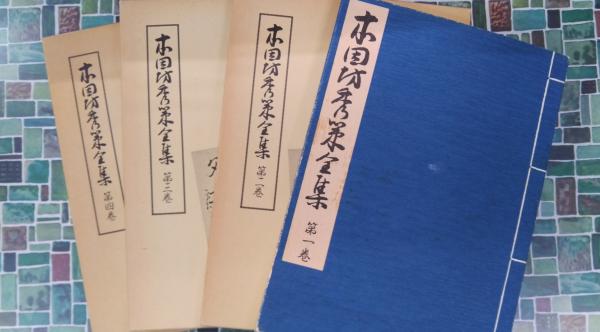 本因坊秀策全集 第四巻
本因坊秀策全集 第三巻
本因坊秀策全集 第二巻
本因坊秀策全集 第一巻